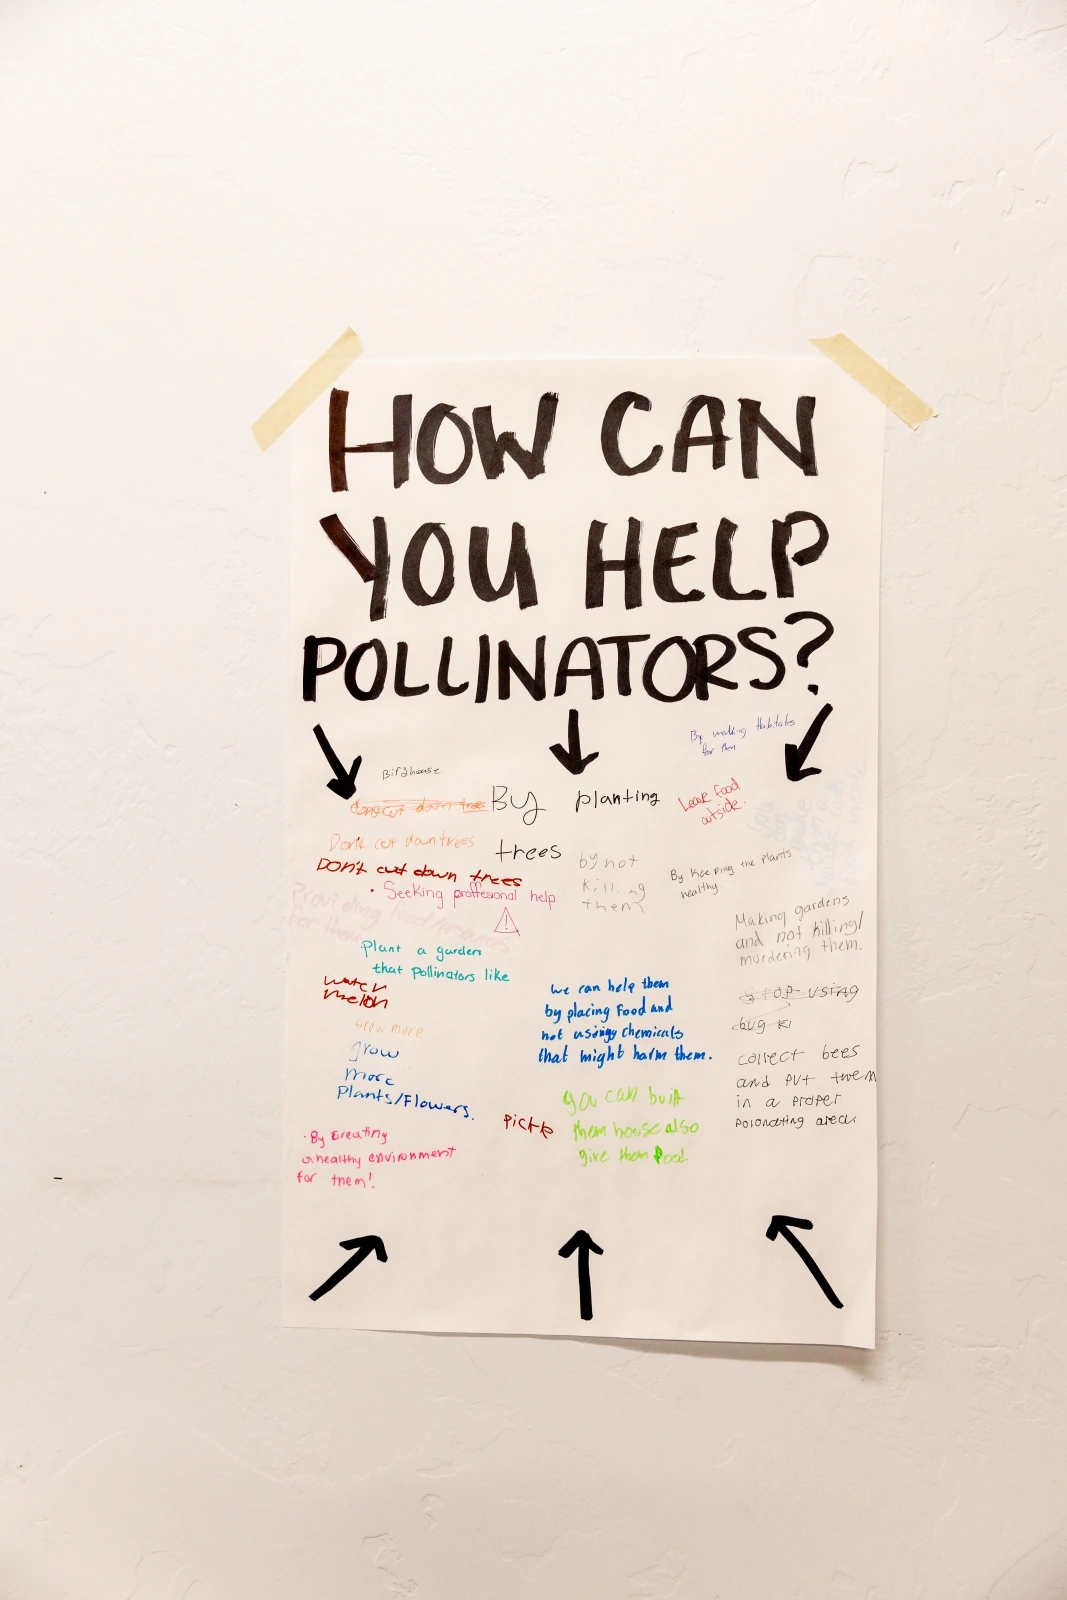 HOW CAN
YOU HELP
POLLINATORS?
By making Habitats
for then
Birdhouse
Don't cut down trees
By planting
trees
Leave food
outside.
Don't cut down trees
Don't cut down trees
• Seeking proffesional help
!
by not
killing
them
By Keeping the plants
healthy.
Providing food/resources
for them
Plant a garden
that Pollinators like
water
melon
Making gardens
and not killing/
murdering them.
we can help them
by placing Food and
not using chemicals
that might harm them.
STOP USING
bug Ki
Grow more
grow
more
Plants/Flowers.
collect bees
and put them
in a proper
polonating area.
you can built
them house also
give them food.
• By creating
a healthy environment
for them!